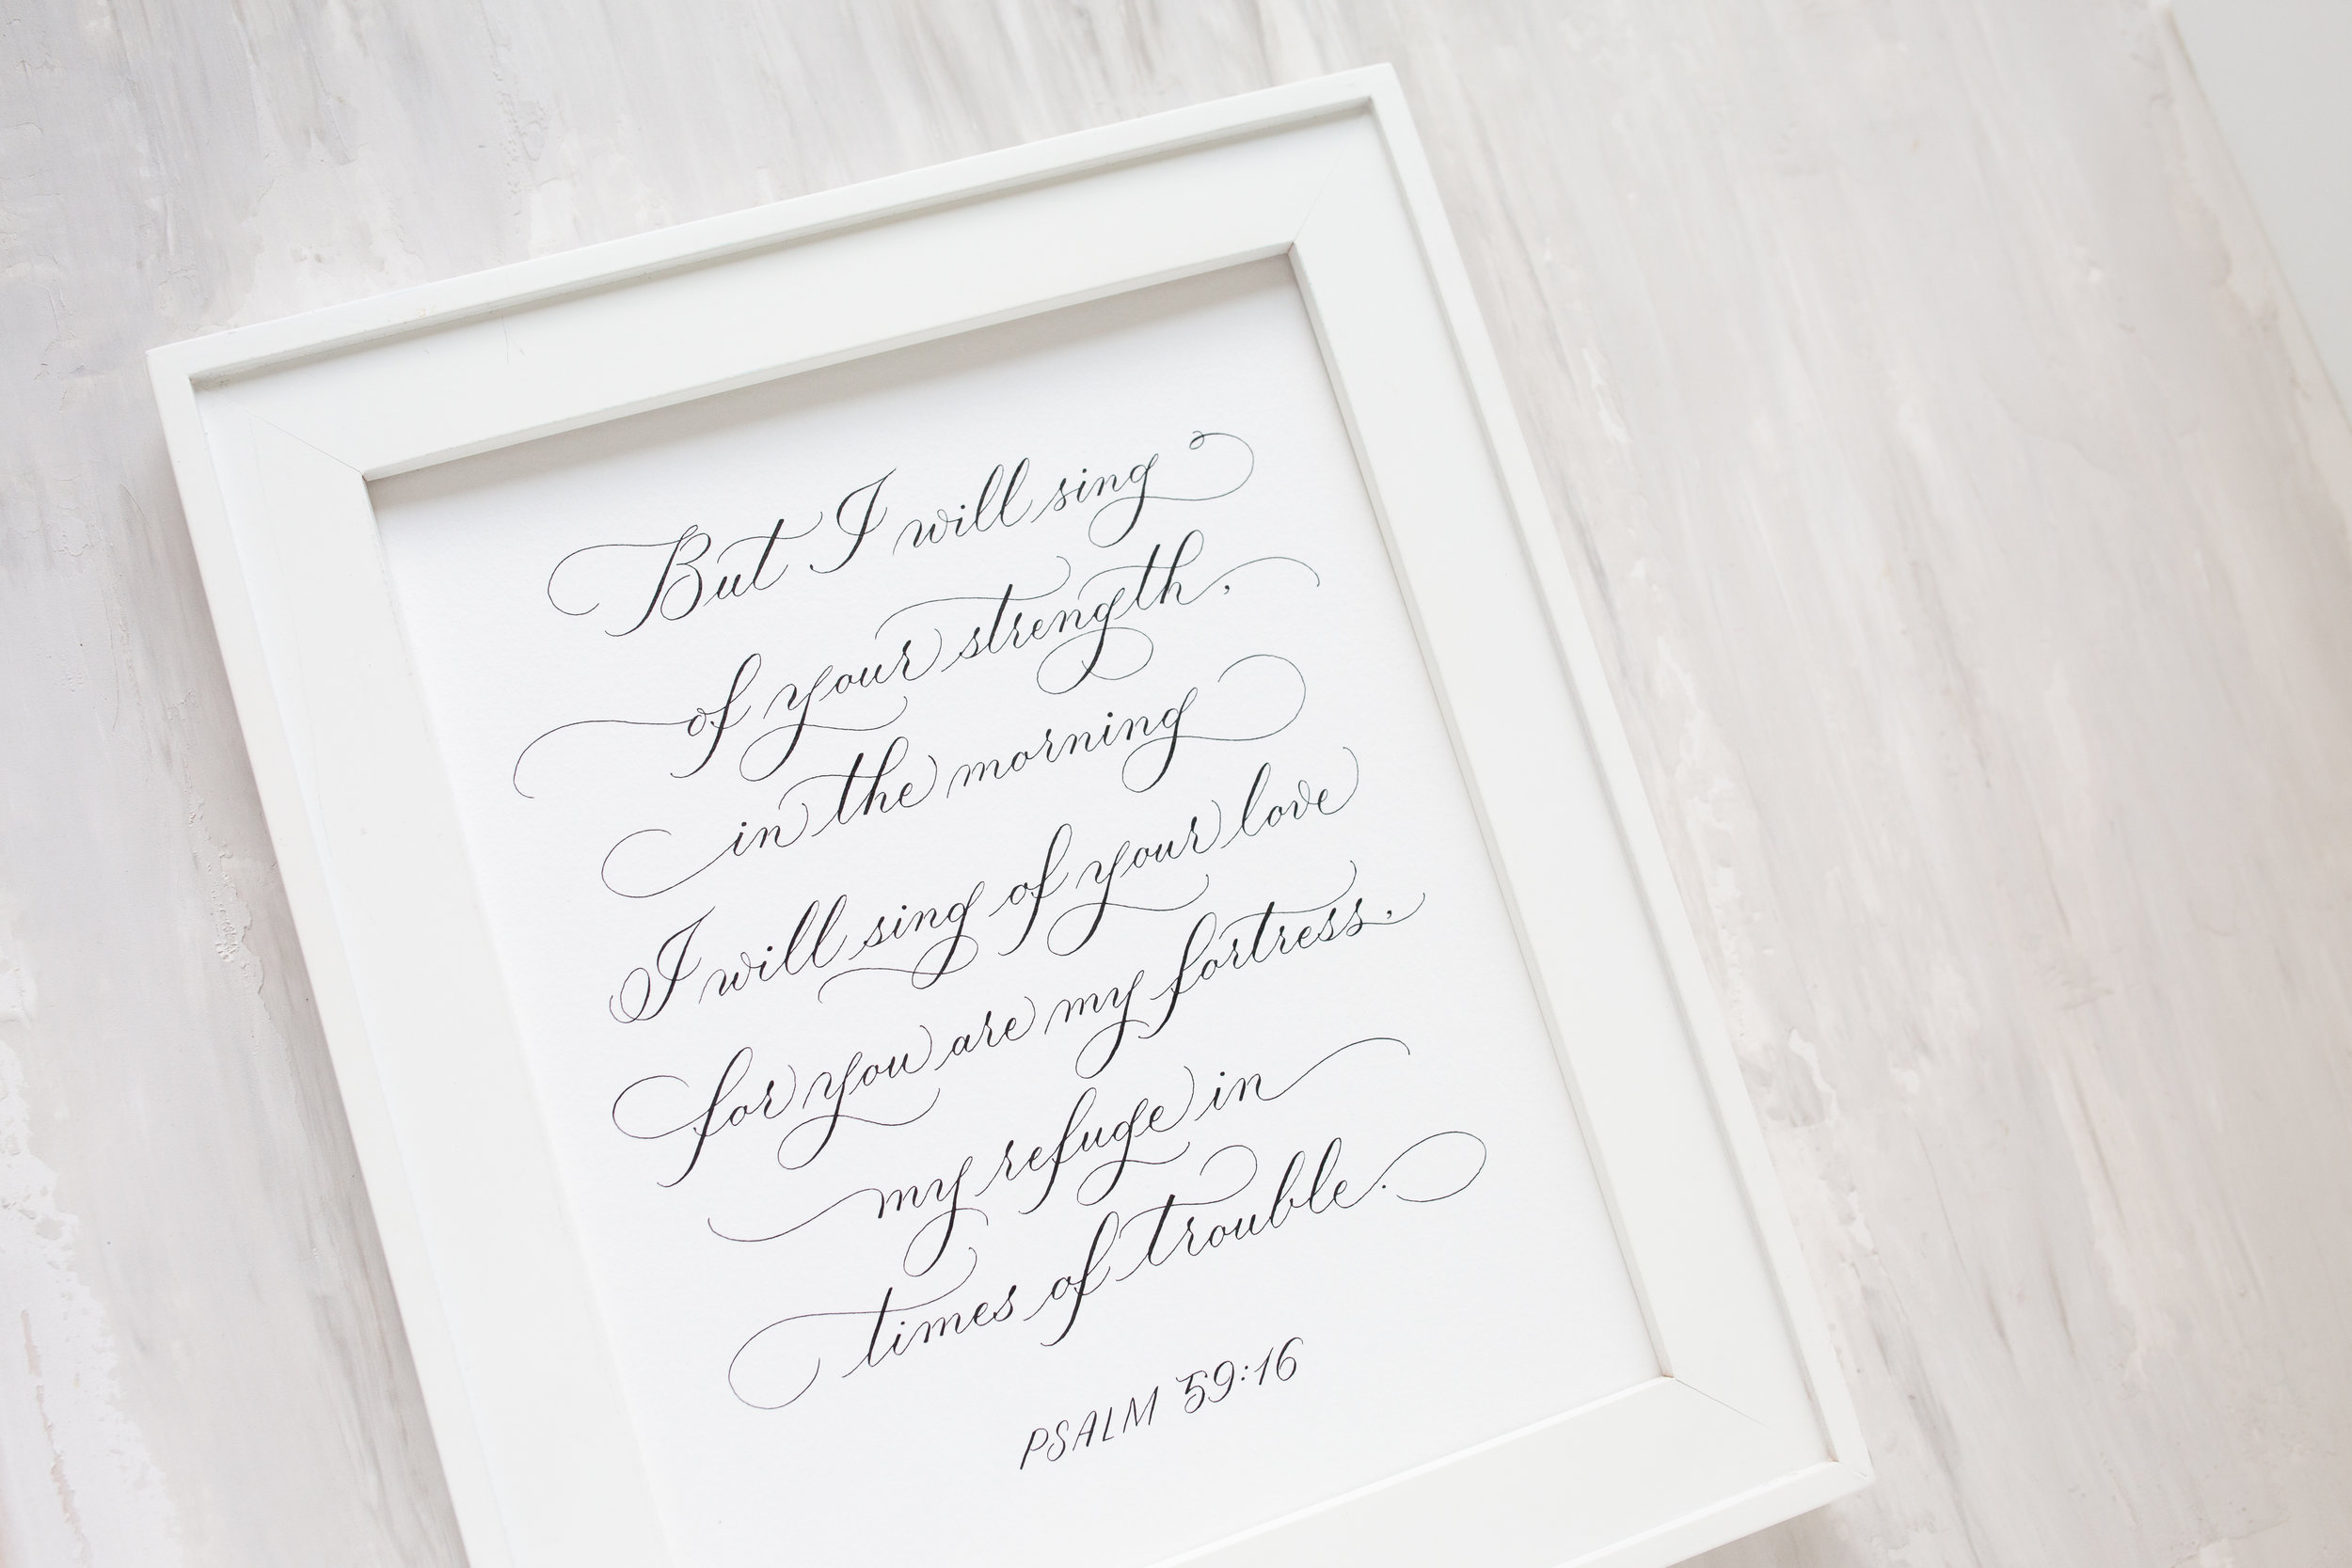 But I will sing
of your strength,
in the morning
I will sing of your love
for you are my fortress,
my refuge in
times of trouble.
PSALM 59:16